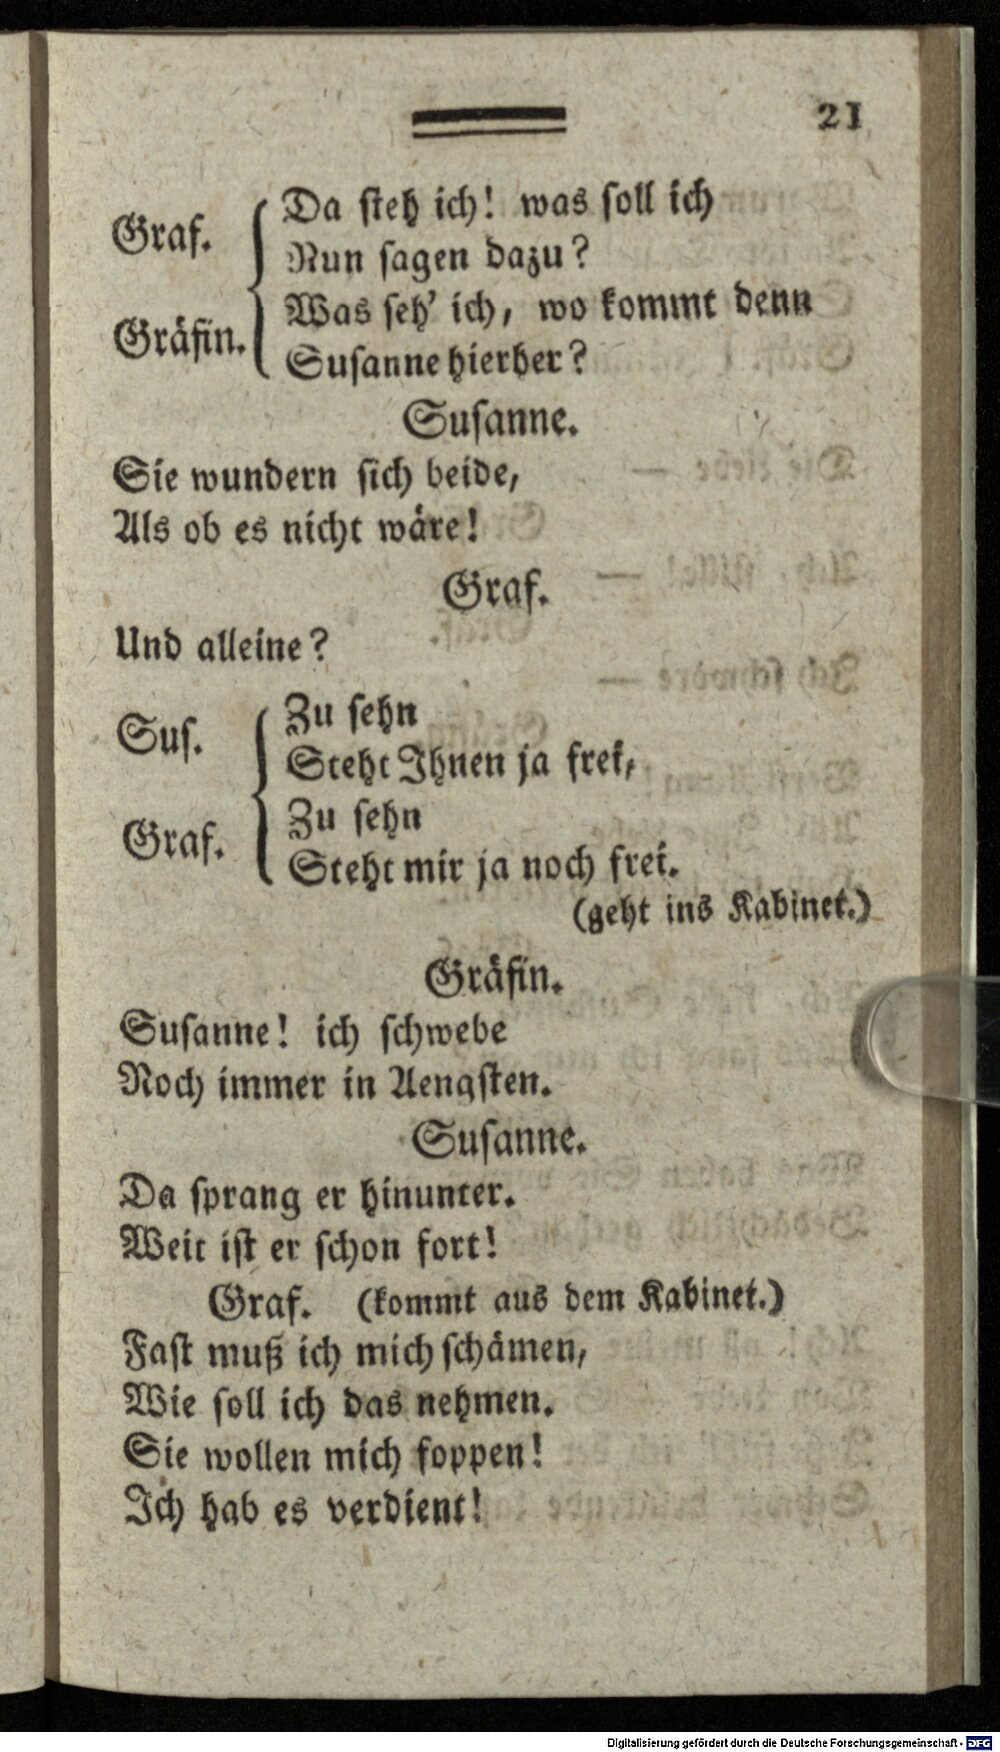 21
Graf. Da steh ich! was soll ich
Nun sagen dazu?
Gräfin. Was seh' ich, wo kommt denn
Susanne hierher?
Susanne.
Sie wundern sich beide,
Als ob es nicht wäre!
Graf.
Und alleine?
Sus. Zu sehn
Steht Ihnen ja frei,
Graf. Zu sehn
Steht mir ja noch frei.
(geht ins Kabinet.)
Gräfin.
Susanne! ich schwebe
Noch immer in Aengsten.
Susanne.
Da sprang er hinunter.
Weit ist er schon fort!
Graf. (kommt aus dem Kabinet.)
Fast muß ich mich schämen,
Wie soll ich das nehmen.
Sie wollen mich foppen!
Ich hab es verdient!
Digitalisierung gefördert durch die Deutsche Forschungsgemeinschaft - DFG